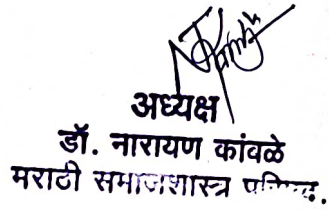 अध्यक्ष
डॉ. नारायण कांवळे
मराठी समाजशास्त्र परिषद.